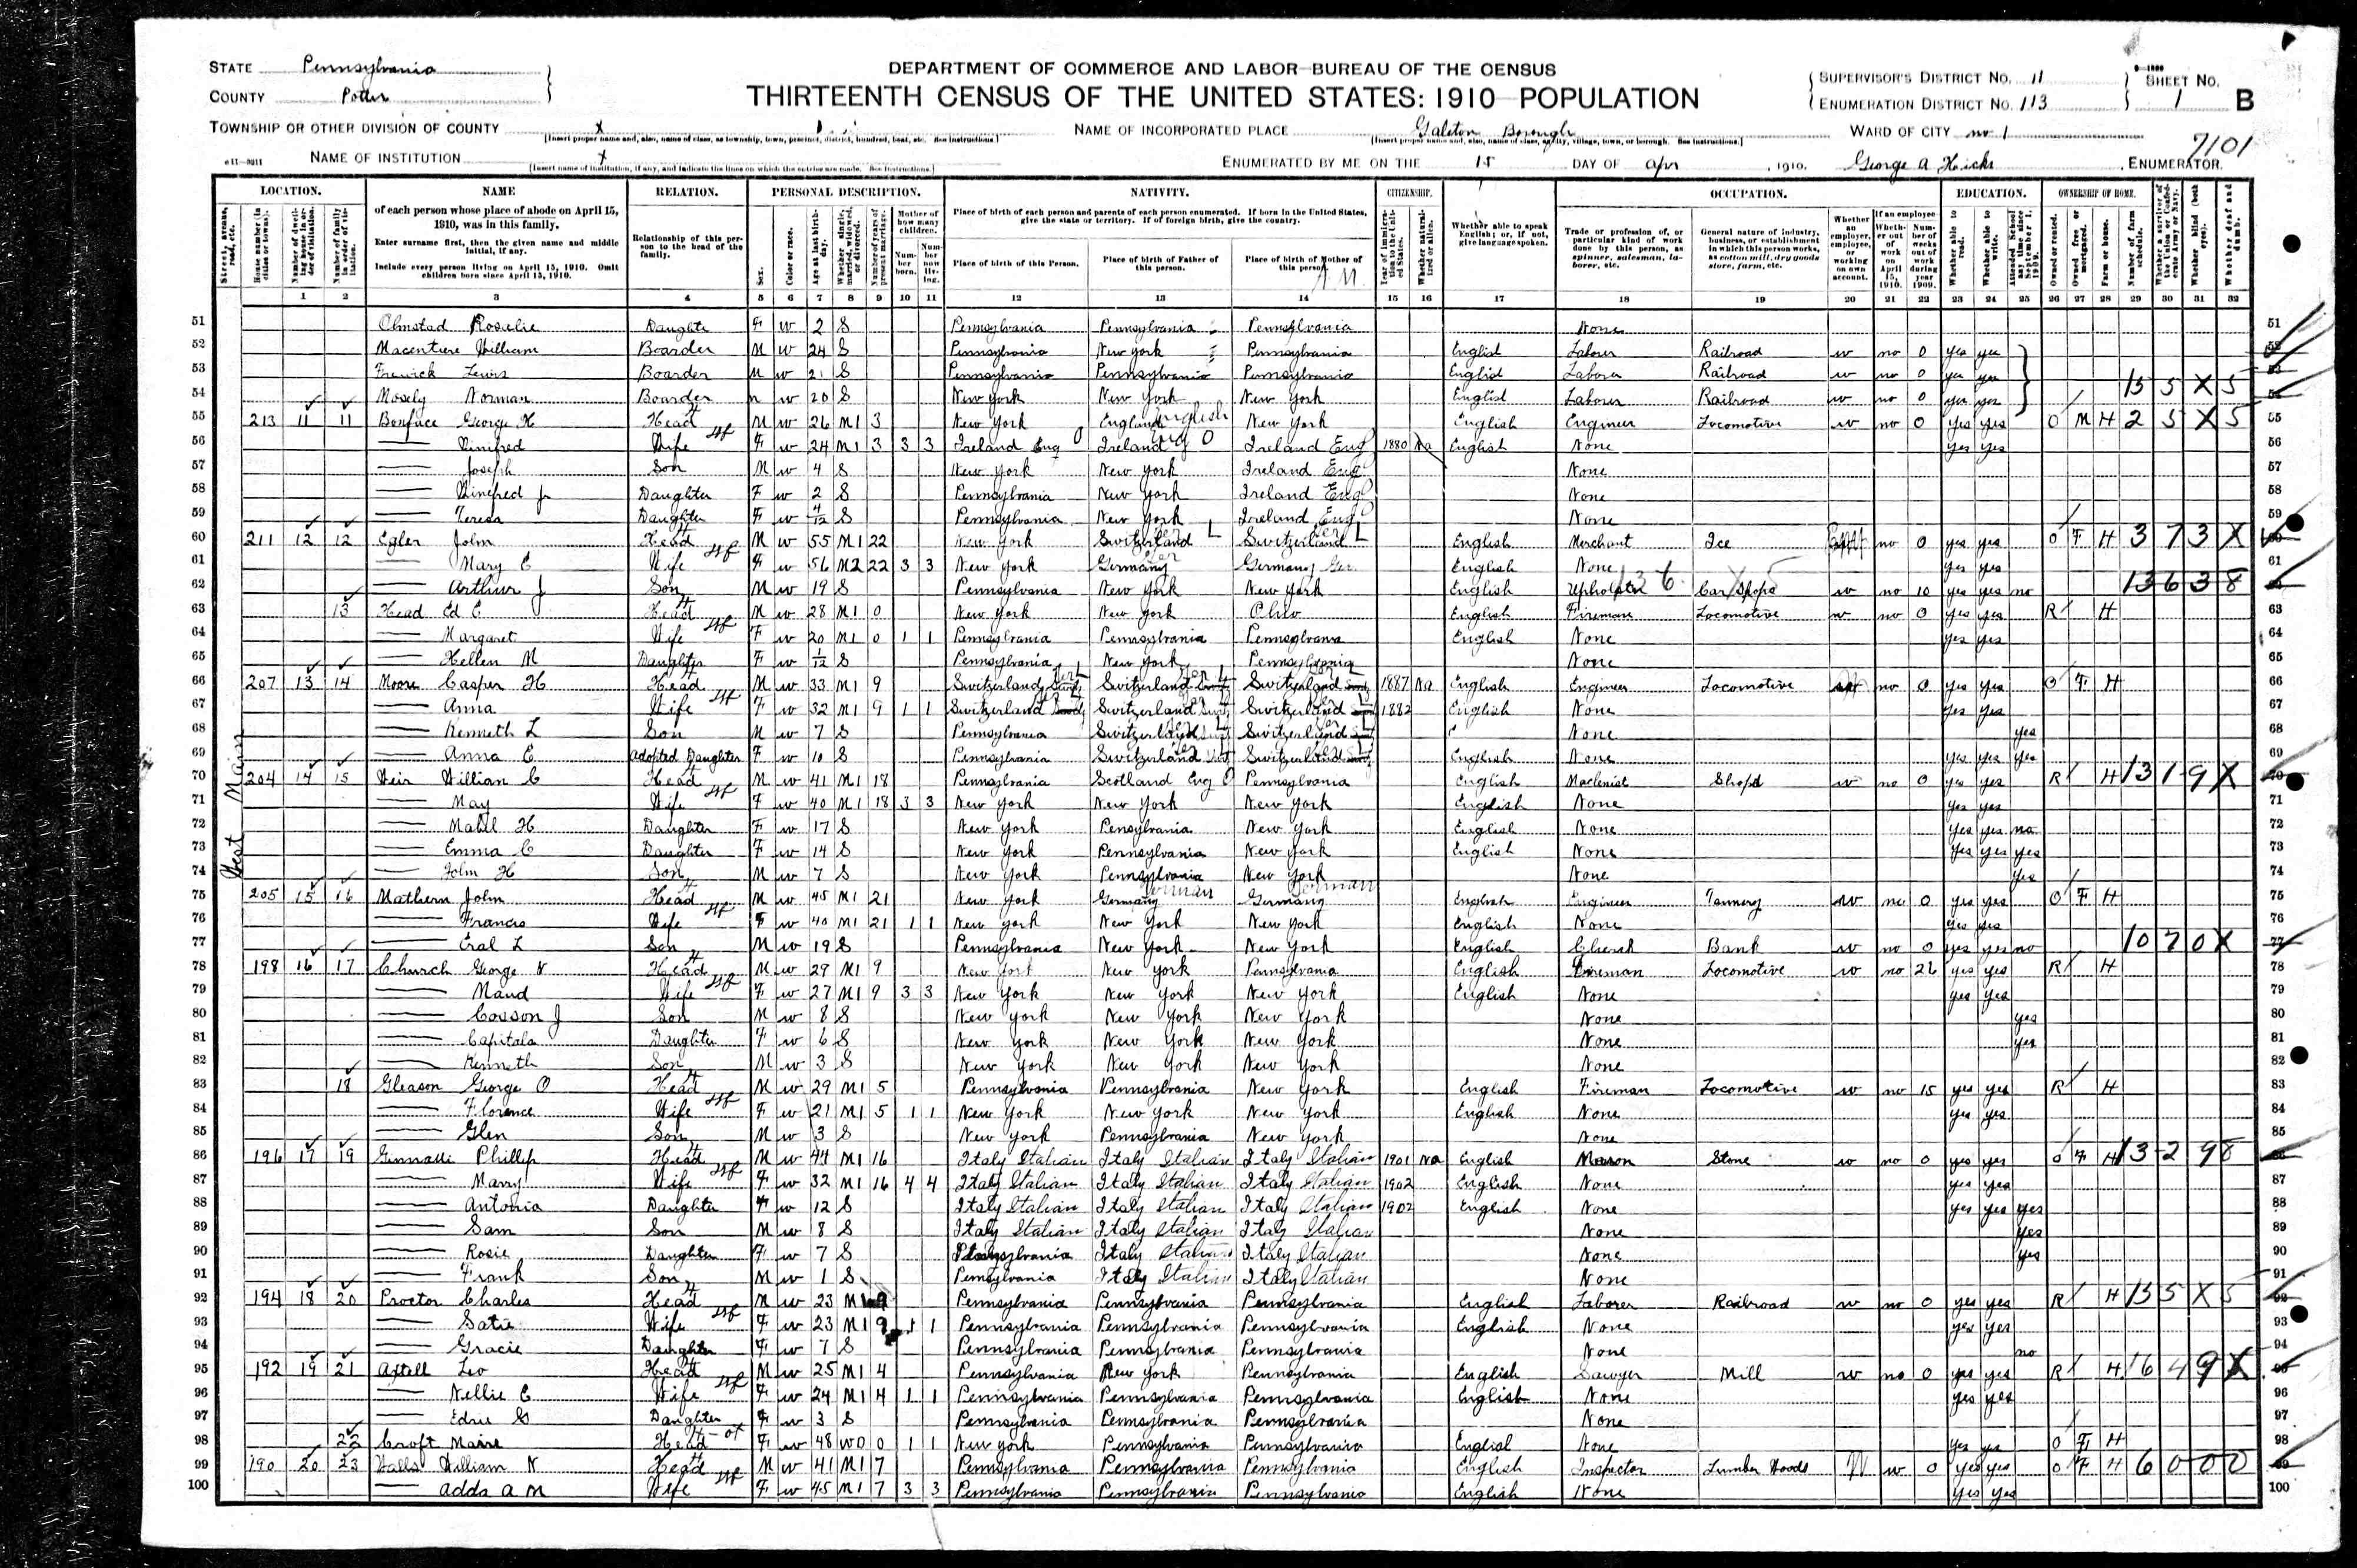 STATE Pennsylvania
COUNTY Potter
DEPARTMENT OF COMMERCE AND LABOR-BUREAU OF THE CENSUS
THIRTEENTH CENSUS OF THE UNITED STATES: 1910 POPULATION
SUPERVISOR'S DISTRICT No. 11
ENUMERATION DISTRICT No. 113
SHEET No. 1 B
TOWNSHIP OR OTHER DIVISION OF COUNTY x
NAME OF INCORPORATED PLACE Galeton Borough
WARD OF CITY no 1
7101
NAME OF INSTITUTION x
ENUMERATED BY ME ON THE 15 DAY OF apr, 1910. George A Hicks, ENUMERATOR.
LOCATION. NAME RELATION. PERSONAL DESCRIPTION. NATIVITY. CITIZENSHIP. OCCUPATION. EDUCATION. OWNERSHIP OF HOME.
of each person whose place of abode on April 15, 1910, was in this family.
Enter surname first, then the given name and middle initial, if any.
Include every person living on April 15, 1910. Omit children born since April 15, 1910.
Relationship of this person to the head of the family.
Place of birth of each person and parents of each person enumerated. If born in the United States, give the state or territory. If of foreign birth, give the country.
Place of birth of this Person. Place of birth of Father of this person. Place of birth of Mother of this person.
Whether able to speak English; or, if not, give language spoken.
1 2 3 4 5 6 7 8 9 10 11 12 13 14 15 16 17 18 19 20 21 22 23 24 25 26 27 28 29 30 31 32
West Main
51 Olmstad Roselie Daughter F w 2 S Pennsylvania Pennsylvania Pennsylvania None 51
52 Macentire William Boarder M w 24 S Pennsylvania New York Pennsylvania English Laborer Railroad w no 0 yes yes
53 Lewis Boarder M w 21 S Pennsylvania Pennsylvania Pennsylvania English Laborer Railroad w no 0 yes yes
54 Mosely Norman Boarder w 20 S New York New York New York English Laborer Railroad w no 0 yes yes 15 5 X 5
55 213 11 11 Bonface George H Head M w 26 M1 3 New York England English New York English Engineer Locomotive w no 0 yes yes O M H 2 5 X 5 55
56 Winifred Wife F w 24 M1 3 3 3 Ireland Eng Ireland Ireland Eng 1880 Na English None yes yes 56
57 Joseph Son M w 4 S New York New York Ireland Eng None 57
58 Winefred Jr Daughter F w 2 S Pennsylvania New York Ireland Eng None 58
59 Teresa Daughter F w 4/12 S Pennsylvania New York Ireland Eng None 59
60 211 12 12 Egler John Head M w 55 M1 22 New York Switzerland Switzerland English Merchant Ice no 0 yes yes O F H 3 7 3 X
61 Mary E Wife F w 56 M2 22 3 3 New York Germany Germany Ger English None yes yes 61
62 Arthur J Son M w 19 S Pennsylvania New York New York English Upholster Car Shops w no 10 yes yes no 13 6 3 8
63 13 Head Ed E Head M w 28 M1 0 New York New York Ohio English Fireman Locomotive w no 0 yes yes R H 63
64 Margaret Wife F w 20 M1 0 1 1 Pennsylvania Pennsylvania Pennsylvania English None yes yes 64
65 Hellen M Daughter F w 1/12 S Pennsylvania New York Pennsylvania None 65
66 207 13 14 Moore Casper H Head M w 33 M1 9 Switzerland Switzerland Switzerland 1887 Na English Engineer Locomotive no 0 yes yes O F H 66
67 Anna Wife F w 32 M1 9 1 1 Switzerland Switzerland Switzerland 1882 English None yes yes 67
68 Kenneth L Son M w 7 S Pennsylvania Switzerland Switzerland None yes 68
69 Anna E Adopted Daughter F w 10 S Pennsylvania Switzerland Switzerland English None yes yes yes 69
70 204 14 15 Weir Willian C Head M w 41 M1 18 Pennsylvania Scotland Eng Pennsylvania English Machenist Shops w no 0 yes yes R H 13 1 9 X
71 May Wife F w 40 M1 18 3 3 New York New York New York English None yes yes 71
72 Mabel H Daughter F w 17 S New York Pensylvania New York English None yes yes no 72
73 Emma C Daughter F w 14 S New York Pennsylvania New York English None yes yes yes 73
74 John H Son M w 7 S New York Pennsylvania New York None yes 74
75 205 15 16 Mathern John Head M w 45 M1 21 New York Germany German Germany German English Engineer Tannery w no 0 yes yes O F H 75
76 Francis Wife F w 40 M1 21 1 1 New York New York New York English None yes yes 76
77 Eral L Son M w 19 S Pennsylvania New York New York English Clurk Bank w no 0 yes yes no 10 7 0 X
78 198 16 17 Church George N Head M w 29 M1 9 New York New York Pennsylvania English Fireman Locomotive w no 26 yes yes R H 78
79 Maud Wife F w 27 M1 9 3 3 New York New York New York English None yes yes 79
80 Cosson J Son M w 8 S New York New York New York None yes 80
81 Capitola Daughter F w 6 S New York New York New York None yes 81
82 Kenneth Son M w 3 S New York New York New York None 82
83 18 Gleason George O Head M w 29 M1 5 Pennsylvania Pennsylvania New York English Fireman Locomotive w no 15 yes yes R H 83
84 Florence Wife F w 21 M1 5 1 1 New York New York New York English None yes yes 84
85 Glen Son M w 3 S New York Pennsylvania New York None 85
86 196 17 19 Phillip Head M w 44 M1 16 Italy Italian Italy Italian Italy Italian 1901 Na English Mason Stone w no 0 yes yes O F H 13 2 9 8
87 Marry Wife F w 32 M1 16 4 4 Italy Italian Italy Italian Italy Italian 1902 English None yes yes 87
88 Antonia Daughter F w 12 S Italy Italian Italy Italian Italy Italian 1902 English None yes yes yes 88
89 Sam Son M w 8 S Italy Italian Italy Italian Italy Italian None yes 89
90 Rosie Daughter F w 7 S Pennsylvania Italy Italian Italy Italian None yes 90
91 Frank Son M w 1 S Pennsylvania Italy Italian Italy Italian None 91
92 194 18 20 Proctor Charles Head M w 23 M1 9 Pennsylvania Pennsylvania Pennsylvania English Laborer Railroad w no 0 yes yes R H 15 5 X 5
93 Satie Wife F w 23 M1 9 1 1 Pennsylvania Pennsylvania Pennsylvania English None yes yes 93
94 Gracie Daughter F w 7 S Pennsylvania Pennsylvania Pennsylvania None no 94
95 192 19 21 Axtell Leo Head M w 25 M1 4 Pennsylvania New York Pennsylvania English Sawyer Mill w no 0 yes yes R H 16 4 9 X
96 Nellie E Wife F w 24 M1 4 1 1 Pennsylvania Pennsylvania Pennsylvania English None yes yes 96
97 Edrie Daughter F w 3 S Pennsylvania Pennsylvania Pennsylvania None 97
98 22 Croft Marie Head F w 48 WD 0 1 1 New York Pennsylvania Pennsylvania English None yes yes O F H 98
99 190 20 23 Walls William N Head M w 41 M1 7 Pennsylvania Pennsylvania Pennsylvania English Inspector Lumber Woods W w 0 yes yes O F H 6 0 0 0
100 adda a M Wife F w 45 M1 7 3 3 Pennsylvania Pennsylvania Pennsylvania English None yes yes 100